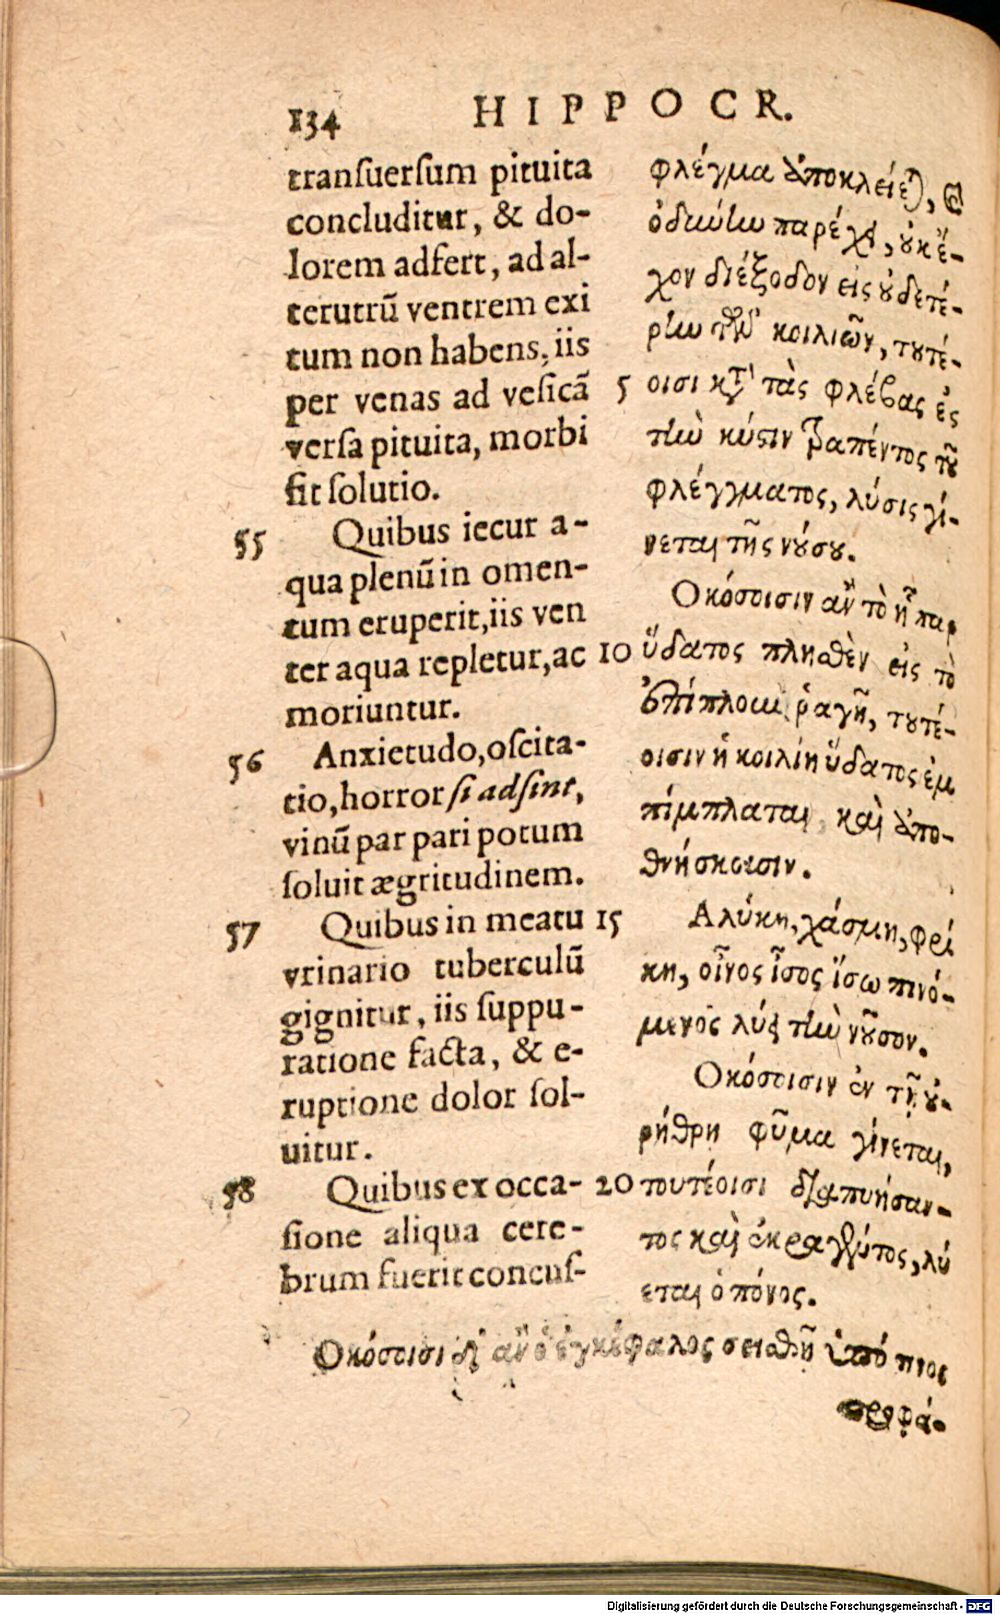 134 HIPPOCR.
tranſuerſum pituita
concluditur, & do-
lorem adfert, ad al-
terutrũ ventrem exi
tum non habens, iis
per venas ad veſicã
verſa pituita, morbi
fit ſolutio.
55 Quibus iecur a-
qua plenũ in omen-
tum eruperit, iis ven
ter aqua repletur, ac
moriuntur.
56 Anxietudo, oſcita-
tio, horror ſi adſint,
vinũ par pari potum
ſoluit ægritudinem.
57 Quibus in meatu
vrinario tuberculũ
gignitur, iis ſuppu-
ratione facta, & e-
ruptione dolor ſol-
uitur.
58 Quibus ex occa-
ſione aliqua cere-
brum fuerit concuſ-
φλέγμα ἀποκλείεται, καὶ
ὀδύνην παρέχει, οὐκ ἔ-
χον διέξοδον εἰς οὐδετέ-
ρην τῶν κοιλιῶν, τουτέ-
5 οισι κατὰ τὰς φλέβας ἐς
τὴν κύστιν τραπέντος τοῦ
φλέγματος, λύσις γί-
νεται τῆς νούσου.
Οκόσοισιν ἂν τὸ ἧπαρ
10 ὕδατος πλησθὲν εἰς τὸ
ἐπίπλοον ῥαγῇ, τουτέ-
οισιν ἡ κοιλίη ὕδατος ἐμ
πίμπλαται καὶ ἀπο-
θνήσκουσιν.
15 Αλύκη, χάσμη, φρί
κη, οἶνος ἶσος ἴσω πινό-
μενος λύει τὴν νοῦσον.
Οκόσοισιν ἐν τῇ οὐ-
ρήθρῃ φῦμα γίνεται,
20 τουτέοισι διαπυήσαν-
τος καὶ ἐκραγέντος, λύ
εται ὁ πόνος.
Οκόσοισι δ' ἂν ὁ ἐγκέφαλος σεισθῇ ὑπό τινος
προφά-
Digitalisierung gefördert durch die Deutsche Forschungsgemeinschaft - DFG